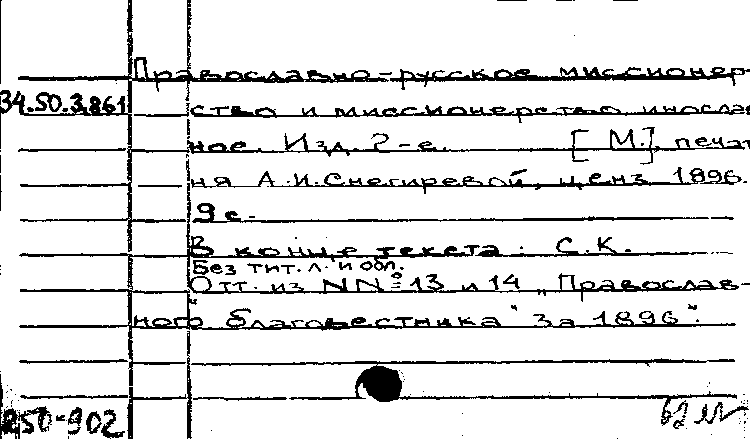 Православно-русское миссионер-
34.50.3.861 ство и миссионерство инослав
ное. Изд. 2-е. [М.], печат
ня А.И.Снегиревой, ценз. 1896.
9 с.
В конце текста: С.К.
Без тит. л. и обл.
Отт. из NN= 13 и 14 „Православ-
ного благовестника" за 1896".
250-902